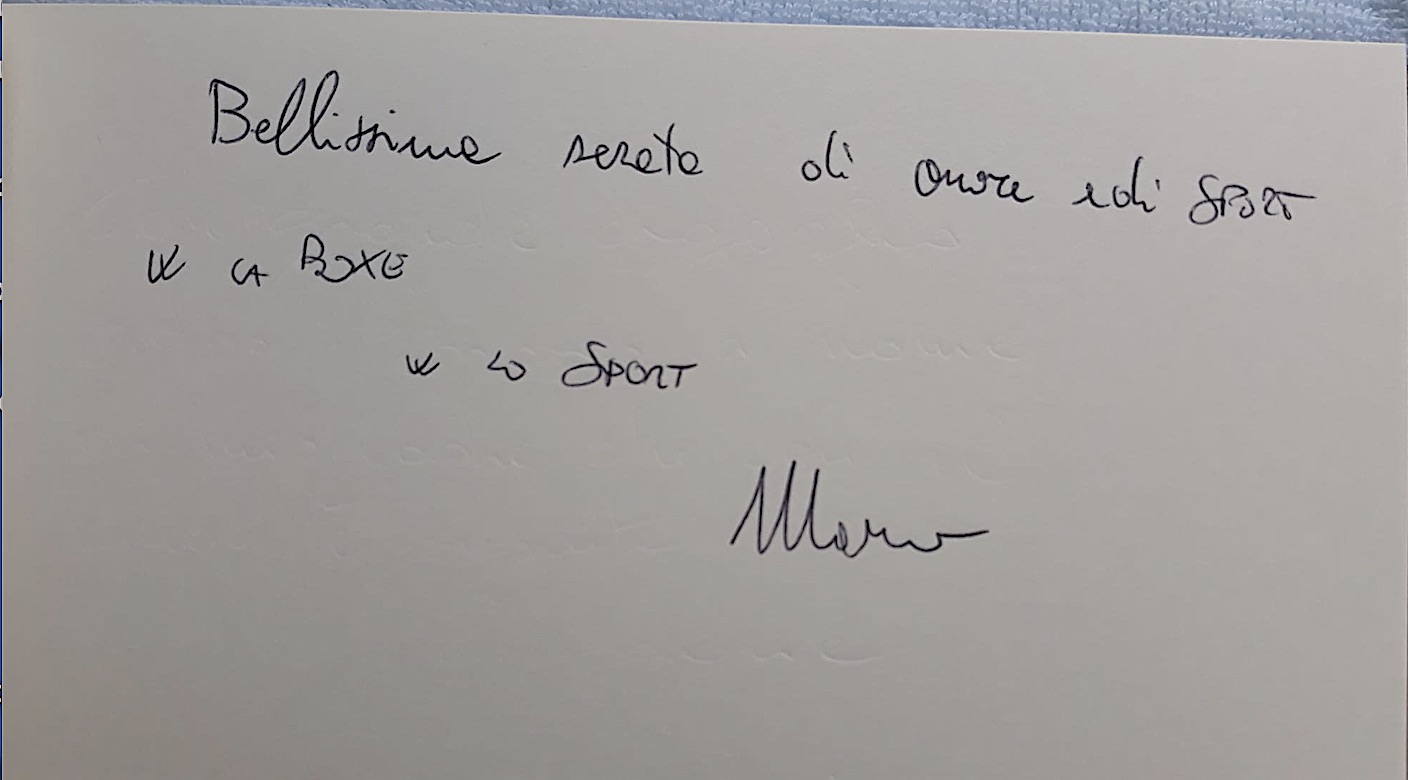 Bellissima serata di onore e di SPORT
W LA BOXE
W LO SPORT